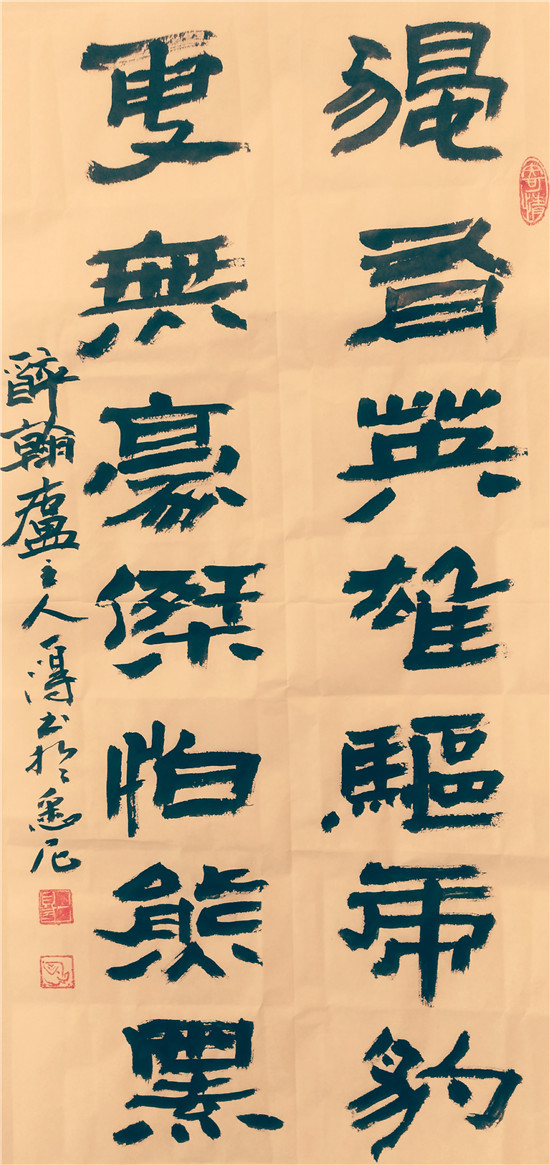 獨有英雄驅虎豹
更無豪傑怕熊羆
醉翰廬主人書於悉尼
寄情